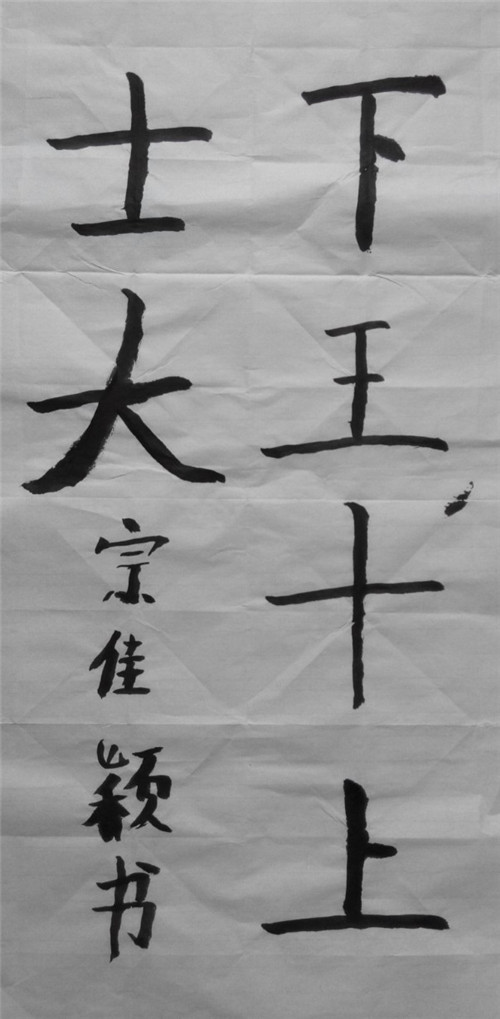 下王十上
士大宗佳颖书